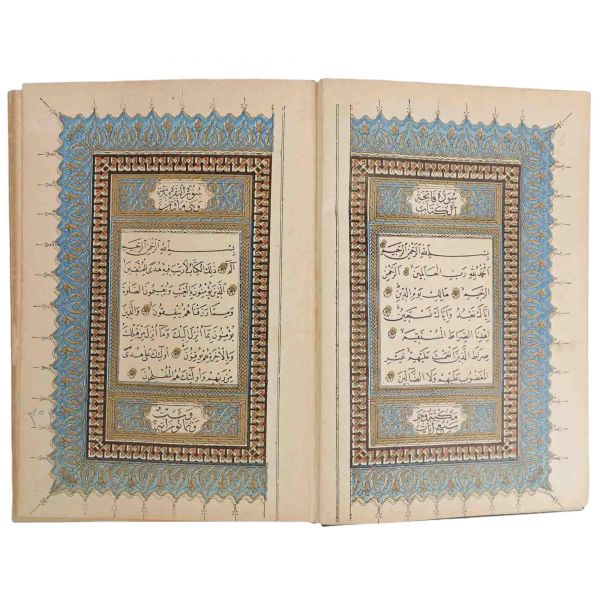 سورة فاتحة
الكتاب
بسم الله الرحمن الرحيم
الحمد لله رب العالمين الرحمن
الرحيم مالك يوم الدين
إياك نعبد وإياك نستعين
اهدنا الصراط المستقيم
صراط الذين انعمت عليهم غير
المغضوب عليهم ولا الضالين
مكية وهي
سبع آيات
سورة البقرة مدنية
وهي مائتان
بسم الله الرحمن الرحيم
الم ذلك الكتاب لا ريب فيه هدى للمتقين
الذين يؤمنون بالغيب ويقيمون الصلوة
ومما رزقناهم ينفقون والذين
يؤمنون بما انزل اليك وما انزل من قبلك
وبالآخرة هم يوقنون اولئك على هدى
من ربهم واولئك هم المفلحون
وست
وثمانون آية